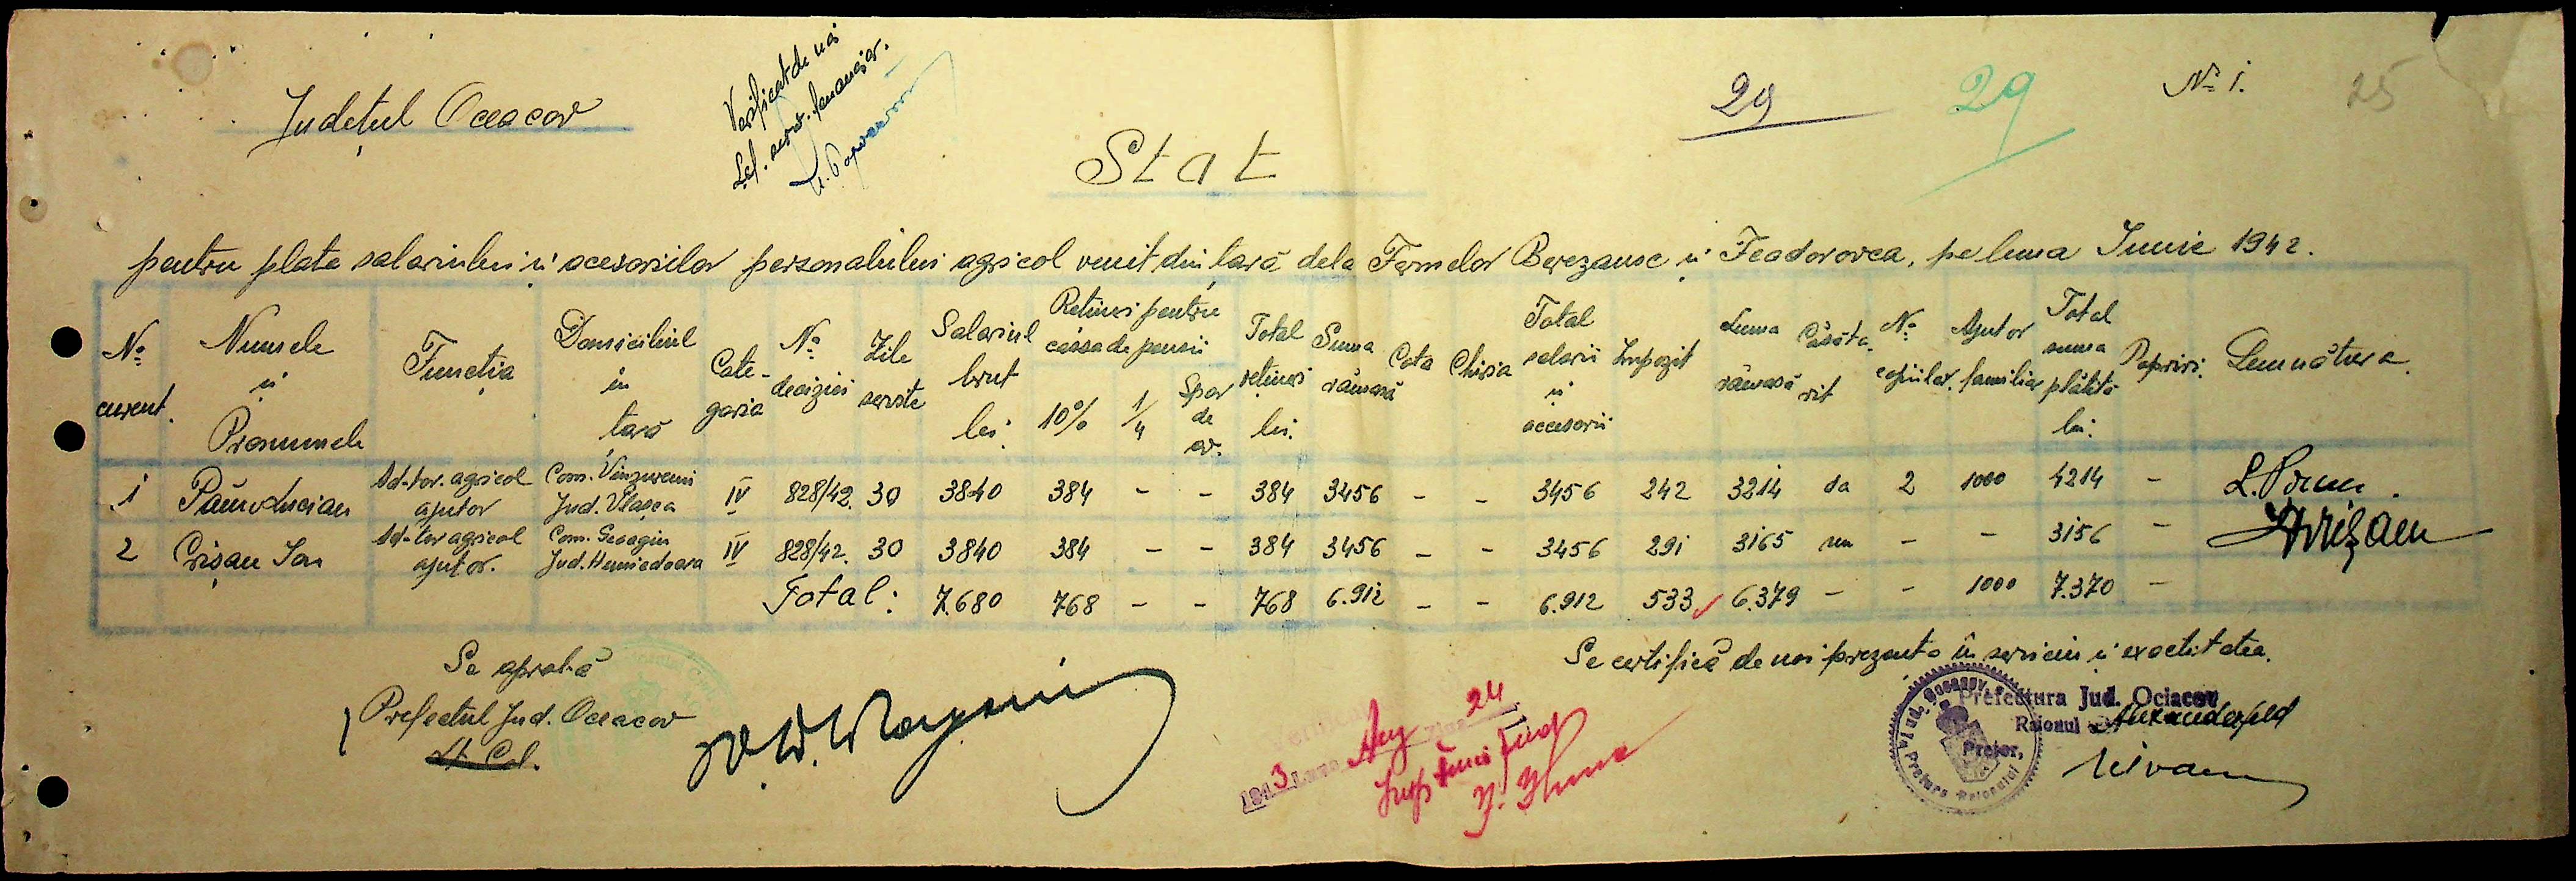 Județul Oceacov
Verificat de noi
Șef. serv. financiar.
29
29
Nº 1.
25
Stat
pentru plata salariului și acesoriilor personalului agricol venit din țară dela Fermelor Berezanse și Feodorovca, pe luna Iunie 1942.
Nº curent. Numele și Pronumele Funcția Domiciliul în țară Cate-goria Nº deciziei Zile servite Salariul brut lei. Rețineri pentru cassa de pensii 10% 1/4 Spor de av. Total rețineri lei. Suma rămasă Cota Chiria Total salarii și accesorii Impozit Suma rămasă Căsăto-rit Nº copiilor. Ajutor familiar Total suma plătită lei. Popriri. Semnătura.
1 Lucian Ad-tor. agricol ajutor Com. Jud. Vlașca IV 828/42. 30 3840 384 - - 384 3456 - - 3456 242 3214 da 2 1000 4214 -
2 Crișan Ion Ad-tor agricol ajutor. Com. Geoagiu Jud. Hunedoara IV 828/42. 30 3840 384 - - 384 3456 - - 3456 291 3165 nu - - 3156 - Crișan
Total: 7.680 768 - - 768 6.912 - - 6.912 533 6.379 - - 1000 7.370 -
Se aprobă
Prefectul Jud. Oceacov
Lt. Col.
1943 Luna Aug Ziua 24
Se certifică de noi prezența în serviciu și exactitatea.
Prefectura Jud. Ociacov
Raionul Alexanderfeld
Pretor,
Pretura Raionului